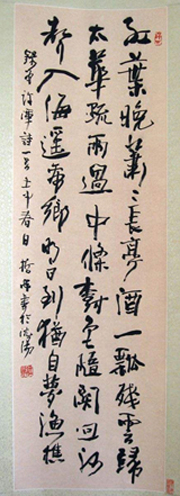 红葉晚蕭〻長亭酒一瓢残雲歸
太華疏雨過中條樹色隨關迥河
聲入海遥帝鄉明日到猶自夢漁樵
錄唐許渾詩一首壬午春日書於沈陽